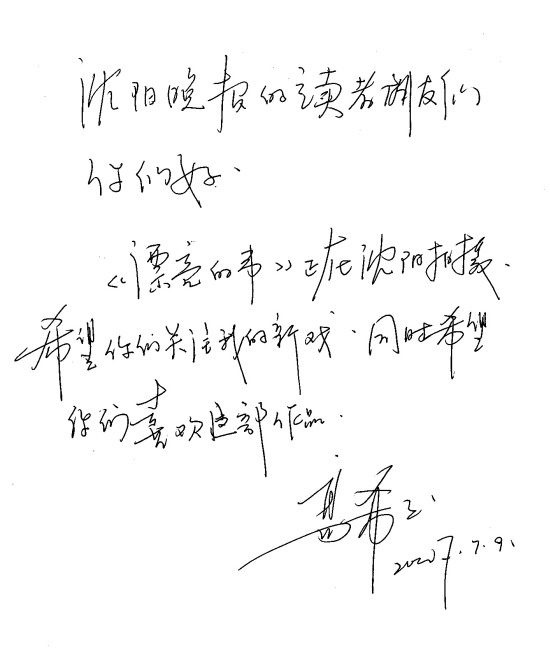 沈阳晚报的读者朋友们
你们好.
《漂亮的事》正在沈阳拍摄.
希望你们关注我的新戏.同时希望
你们喜欢这部作品.
高希希
2007.7.9.